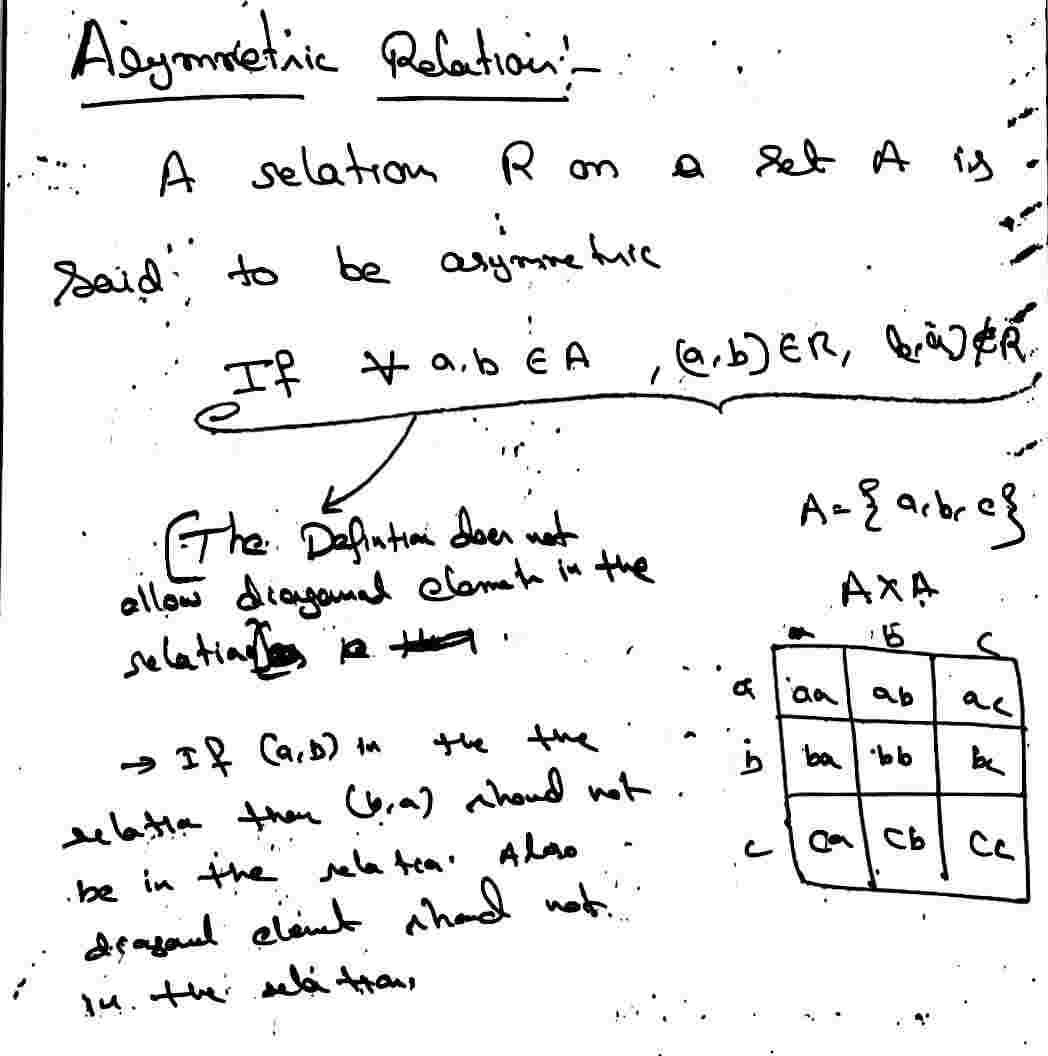 Asymmetric Relation:-
A relation R on a set A is
said to be asymmetric
If ∀ a,b ∈ A , (a,b) ∈ R, (b,a) ∉ R
[The Defintion does not
allow diagonal elements in the
relation]
A = {a, b, c}
A X A
a b c
a aa ab ac
b ba bb bc
c ca cb cc
→ If (a,b) in the the
relation then (b,a) shoud not
be in the relation. Also
diagonal element shoud not
in the relation,